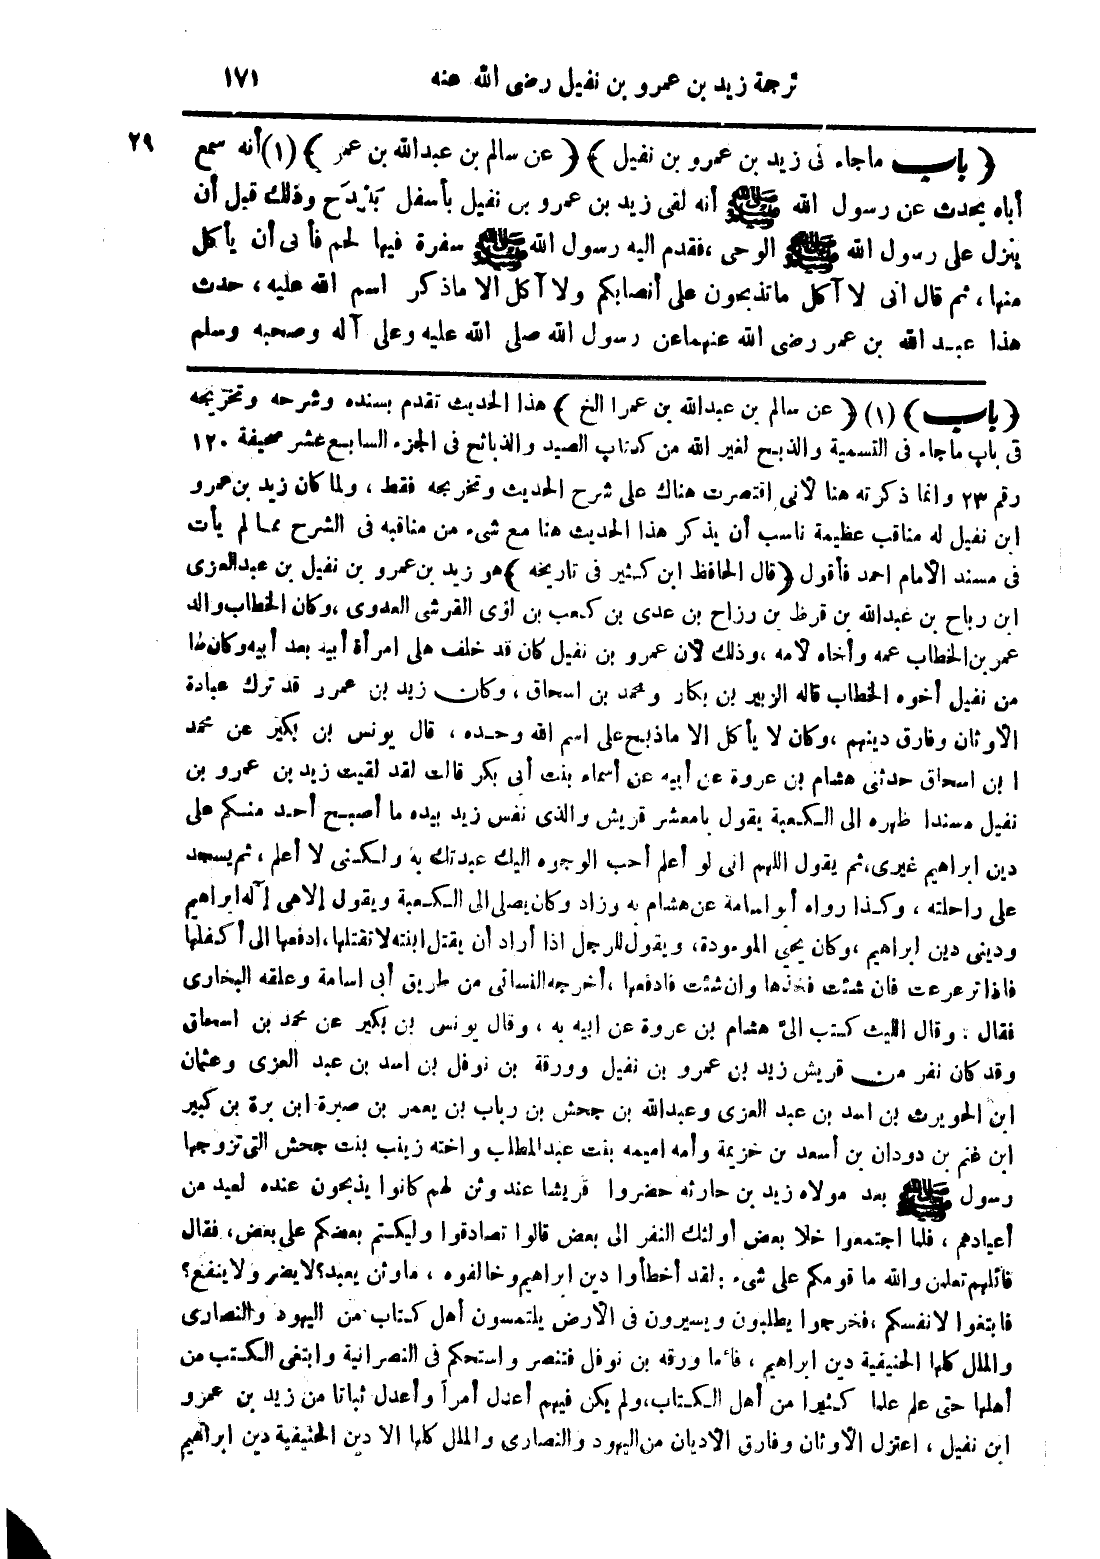 ترجمة زيد بن عمرو بن نفيل رضى الله عنه ١٧١
٢٩
﴿ باب ماجاء فى زيد بن عمرو بن نفيل ﴾ ﴿ عن سالم بن عبدالله بن عمر ﴾ (١) أنه سمع
أباه يحدث عن رسول الله ﷺ أنه لقى زيد بن عمرو بن نفيل بأسفل بَلْدَح وذلك قبل أن
ينزل على رسول الله ﷺ الوحى ،فقدم اليه رسول الله ﷺ سفرة فيها لحم فأبى أن يأكل
منها ، ثم قال انى لا آكل ماتذبحون على أنصابكم ولا آكل الا ماذكر اسم الله عليه ، حدث
هذا عبد الله بن عمر رضى الله عنهماعن رسول الله صلى الله عليه وعلى آله وصحبه وسلم
﴿ باب ﴾ (١) ﴿ عن سالم بن عبدالله بن عمر الخ ﴾ هذا الحديث تقدم بسنده وشرحه وتخريجه
فى باب ماجاء فى التسمية والذبح لغير الله من كتاب الصيد والذبائح فى الجزء السابع عشر صحيفة ١٢٠
رقم ٢٣ وانما ذكرته هنا لأنى اقتصرت هناك على شرح الحديث وتخريجه فقط ، ولما كان زيد بن عمرو
ابن نفيل له مناقب عظيمة ناسب أن يذكر هذا الحديث هنا مع شىء من مناقبه فى الشرح مما لم يأت
فى مسند الامام احمد فأقول ﴿ قال الحافظ ابن كثير فى تاريخه ﴾ هو زيد بن عمرو بن نفيل بن عبدالعزى
ابن رباح بن عبدالله بن قرظ بن رزاح بن عدى بن كعب بن لؤى القرشى العدوى ،وكان الخطاب والد
عمر بن الخطاب عمه وأخاه لأمه ،وذلك لأن عمرو بن نفيل كان قد خلف على امرأة أبيه بعد أبيه وكان لها
من نفيل أخوه الخطاب قاله الزبير بن بكار ومحمد بن اسحاق ، وكان زيد بن عمرو قد ترك عبادة
الأوثان وفارق دينهم ،وكان لا يأكل الا ماذبح على اسم الله وحده ، قال يونس بن بكير عن محمد
ابن اسحاق حدثنى هشام بن عروة عن أبيه عن أسماء بنت أبى بكر قالت لقد لقيت زيد بن عمرو بن
نفيل مسندا ظهره الى الكعبة يقول يامعشر قريش والذى نفس زيد بيده ما أصبح أحد منكم على
دين ابراهيم غيرى ،ثم يقول اللهم انى لو أعلم أحب الوجوه اليك عبدتك به ولكنى لا أعلم ، ثم يسجد
على راحلته ، وكذا رواه أبو اسامة عن هشام به وزاد وكان يصلى الى الكعبة ويقول إلاهى إله ابراهيم
ودينى دين ابراهيم ،وكان يحيي الموءودة، ويقول للرجل اذا أراد أن يقتل ابنته لاتقتلها ،ادفعها الى أكفلها
فاذا ترعرعت فان شئت فخذها وان شئت فادفعها ،أخرجه النسائى من طريق أبى اسامة وعلقه البخارى
فقال : وقال الليث كتب الىَّ هشام بن عروة عن ابيه به ، وقال يونس بن بكير عن محمد بن اسحاق
وقد كان نفر من قريش زيد بن عمرو بن نفيل وورقة بن نوفل بن اسد بن عبد العزى وعثمان
ابن الحويرث بن اسد بن عبد العزى وعبدالله بن جحش بن رباب بن يعمر بن صبرة ابن برة بن كبير
ابن غنم بن دودان بن أسعد بن خزيمة وأمه اميمه بنت عبدالمطلب واخته زينب بنت جحش التى تزوجها
رسول ﷺ بعد مولاه زيد بن حارثه حضروا قريشا عند وثن لهم كانوا يذبحون عنده لعيد من
أعيادهم ، فلما اجتمعوا خلا بعض أولئك النفر الى بعض قالوا تصادقوا وليكتم بعضكم على بعض ، فقال
قائلهم تعلمن والله ما قومكم على شىء : لقد أخطأوا دين ابراهيم وخالفوه ، ماوثن يعبد؟ لايضر ولاينفع؟
فابتغوا لأنفسكم ،فخرجوا يطلبون ويسيرون فى الأرض يلتمسون أهل كتاب من اليهود والنصارى
والملل كلها الحنيفية دين ابراهيم ، فأما ورقه بن نوفل فتنصر واستحكم فى النصرانية وابتغى الكتب من
أهلها حتى علم علما كثيرا من أهل الكتاب ،ولم يكن فيهم أعدل أمراً وأعدل ثباتا من زيد بن عمرو
ابن نفيل ، اعتزل الأوثان وفارق الاديان من اليهود والنصارى والملل كلها الا دين الحنيفية دين ابراهيم